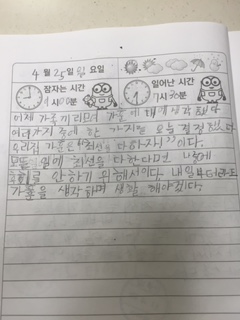 4월 25일 월요일
잠자는 시간 일어난 시간
9시00분 7시30분
어제 가족끼리모여 가훈에 대해생각했다
여러가지 중에 한 가지는 오늘 결정됐다
우리집 가훈은 "최선을 다하자!"이다.
모든 일에 최선을 다한다면 나중에
후회를 안하기 위해서이다. 내일부터라도
가훈을 생각하며 생활해야겠다.